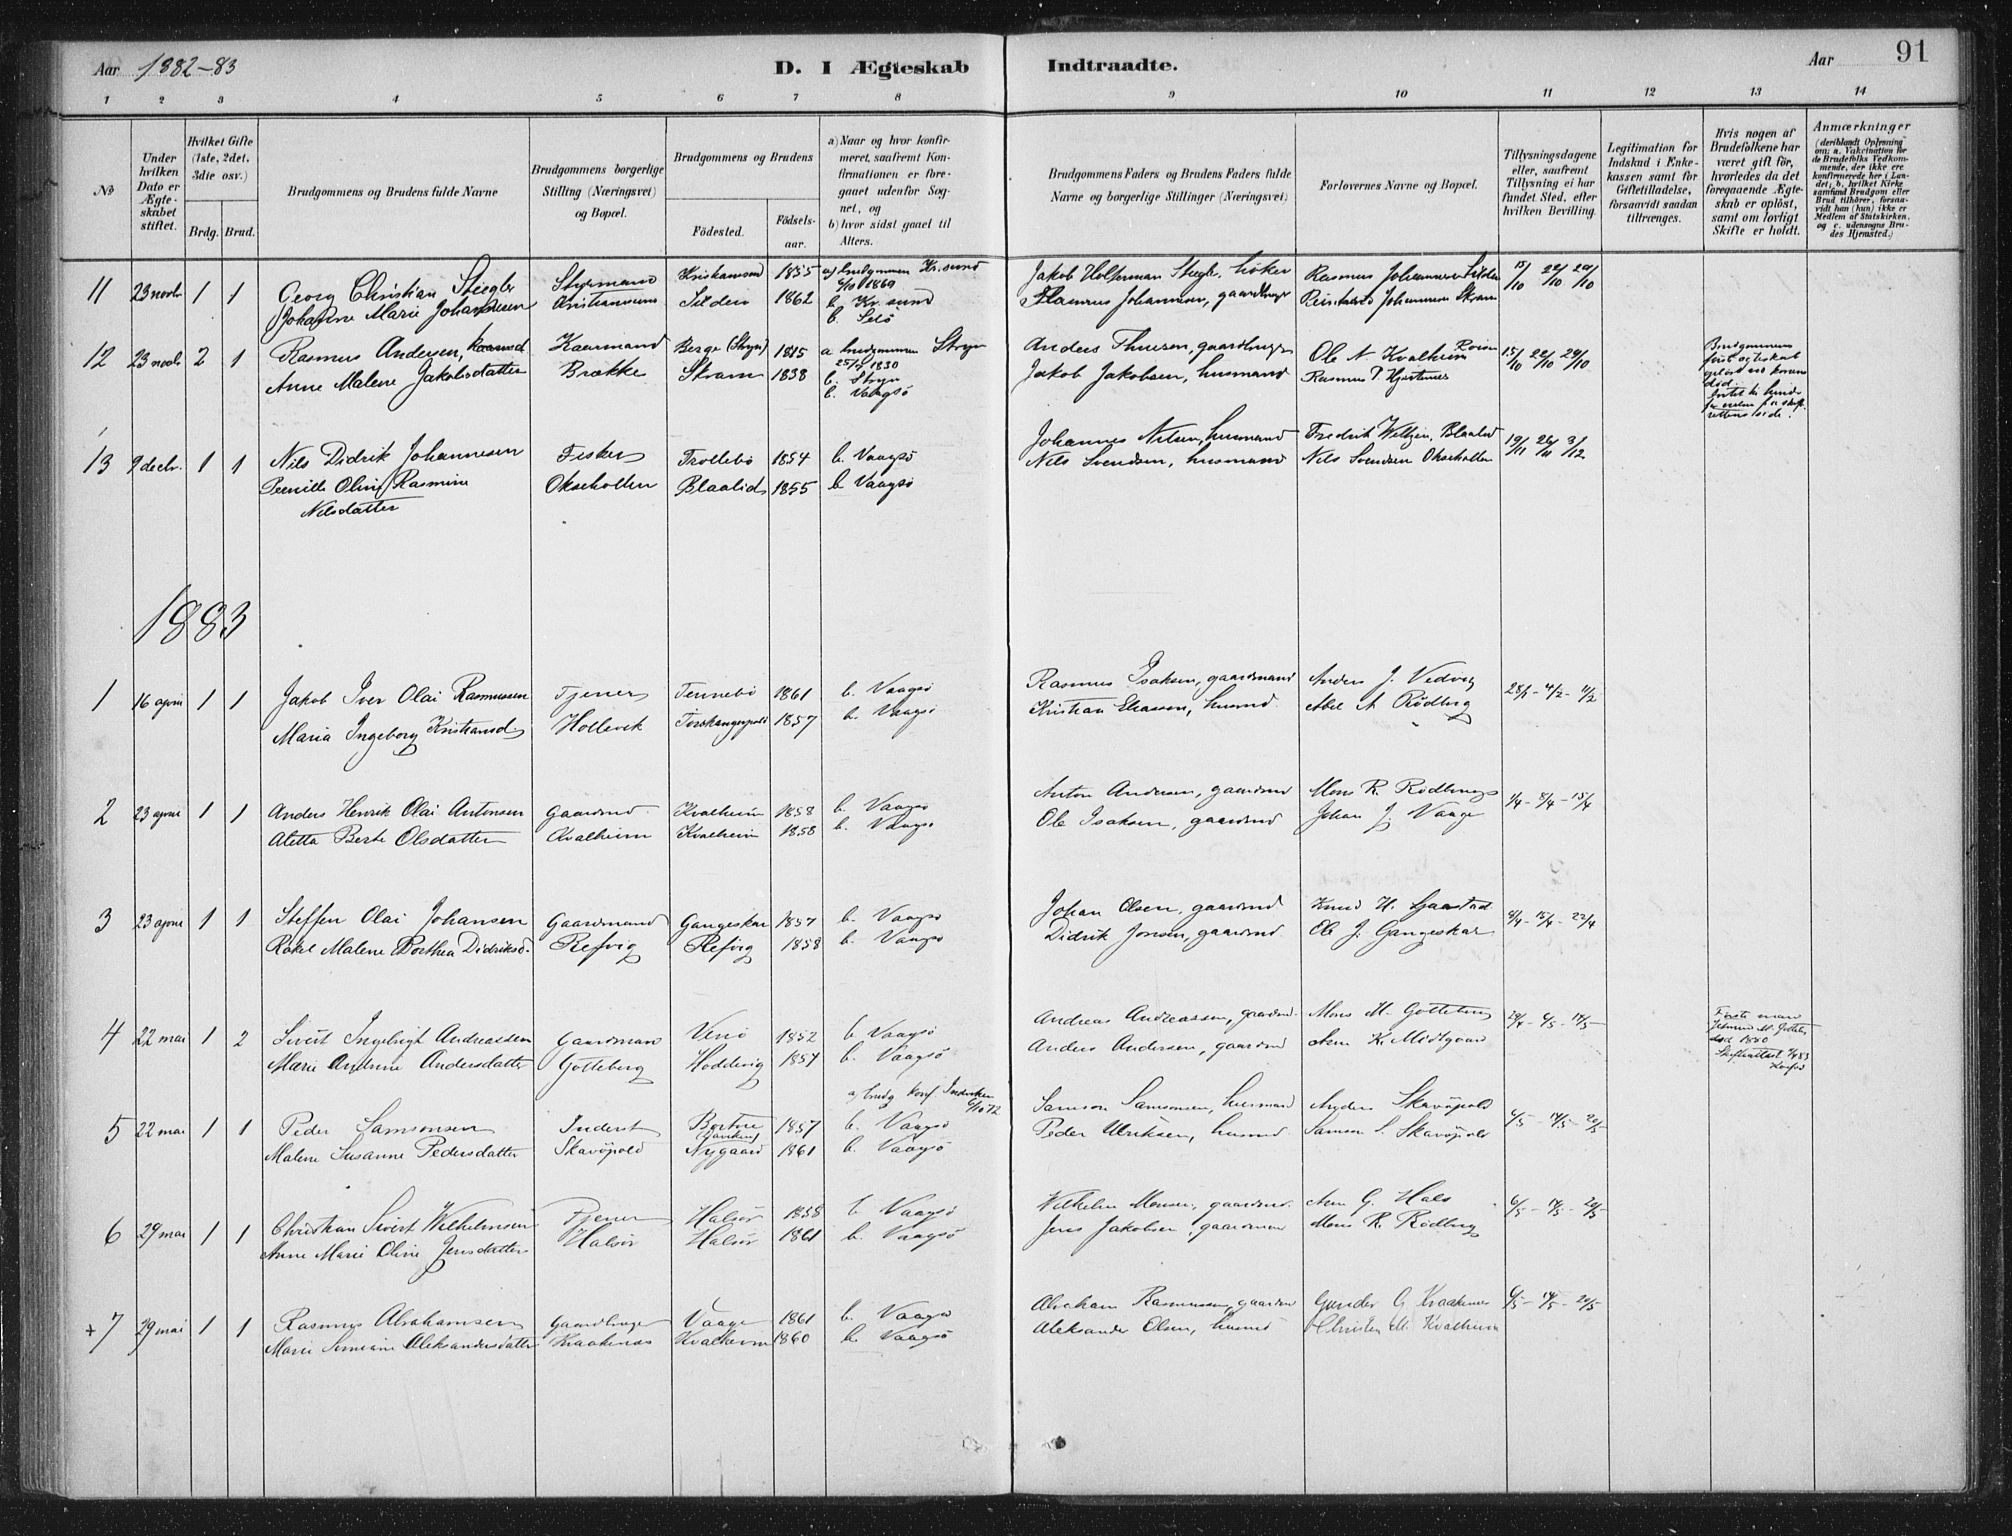 Aar 1882-83
D. I Ægteskab Indtraadte.
Aar 91
1 2 3 4 5 6 7 8 9 10 11 12 13 14
No
Under hvilken Dato er Ægteskabet stiftet.
Hvilket Gifte (1ste, 2det, 3die osv.)
Brdg. Brud.
Brudgommens og Brudens fulde Navne
Brudgommens borgerlige Stilling (Næringsvei) og Bopæl.
Brudgommens og Brudens
Födested. Födselsaar.
a) Naar og hvor konfirmeret, saafremt Konfirmationen er foregaaet udenfor Sognet, og
b) hvor sidst gaaet til Alters.
Brudgommens Faders og Brudens Faders fulde Navne og borgerlige Stillinger (Næringsvei)
Forlovernes Navne og Bopæl.
Tillysningsdagene eller, saafremt Tillysning ei har fundet Sted, efter hvilken Bevilling.
Legitimation for Indskud i Enkekassen samt for Giftetilladelse, forsaavidt saadan tiltrænges.
Hvis nogen af Brudefolkene har været gift för, hvorledes da det foregaaende Ægteskab er oplöst, samt om lovligt Skifte er holdt.
Anmærkninger (deriblandt Oplysning om: a. Vakcination for de Brudefolks Vedkommende, der ikke ere konfirmerede her i Landet; b. hvilket Kirkesamfund Brudgom eller Brud tilhörer, forsaavidt han (hun) ikke er Medlem af Statskirken, og c. udensogns Brudes Hjemsted.)
11 23 novbr 1 1 Georg Christian Stiegler Styrmand Kristiansund 1855 a) brudgommen Kr.sund 6/10 1869
Johanne Marie Johannesen Kristiansund Silden 1862 b. Kr.sund
b. Selö
Jakob Holterman Stiegler, höker Rasmus Johannesen Silden 15/10 22/10 29/10
Johannesen, gaardbruger Johannesen Skram
12 23 novbr 2 1 Rasmus Andersen, Kaarmand Berge (Stryn) 1815 a brudgommen Stryn
Anne Malene Jakobsdatter Brække Skram 1838 25/7 1830
b. Stryn
b. Vaagsö
Anders Thuesen, gaardbruger Ole N. Kvalheim 15/10 22/10 29/10
Jakob Jakobsen, husmand Rasmus P. Hjertenes
Brudgommens förste ægteskab oplöst ved konens död.
13 9 decbr. 1 1 Nils Didrik Johannesen Fisker Trollebö 1854 b. Vaagsö
Pernille Oline Rasmine Okseholten Blaalid 1855 b. Vaagsö
Nilsdatter
Johannes Nilsen, husmand Fredrik Weltzin, Blaalid 19/11 26/11 3/12
Nils Svendsen, husmand Nils Svendsen Okseholten
1883
1 16 april 1 1 Jakob Iver Olai Rasmussen Tjener Tennebö 1861 b. Vaagsö
Maria Ingeborg Kristiansd. Hollevik Torskangerpold 1857 b. Vaagsö
Rasmus Isaksen, gaardmand Anders J. Vedvig 28/1 - 4/2 - 11/2
Kristian Eliassen, husmd. Abel A. Rödberg
2 23 april 1 1 Anders Henrik Olai Antonsen Gaardmd. Kvalheim 1858 b. Vaagsö
Aletta Berte Olsdatter Kvalheim Kvalheim 1858 b. Vaagsö
Anton Andersen, gaardmd Mons R. Rödberg 1/4 - 8/4 - 15/4
Ole Isaksen, gaardmd Johan J. Vaage
3 23 april 1 1 Steffen Olai Johansen Gaardmand Gangeskar 1857 b. Vaagsö
Rakel Malene Dorthea Didriksd. Refvig Refvig 1858 b. Vaagsö
Johan Olsen, gaardmd Knud H. 8/4 - 15/4 - 22/4
Didrik Jonsen, gaardmd Ole J. Gangeskar
4 22 mai 1 2 Sivert Ingebrigt Andreassen Gaardmand Venö 1852 b. Vaagsö
Marie Andrine Andersdatter Götteberg Hoddevig 1857 b. Vaagsö
Andreas Andreassen, gaardmd. Mons M. Götteberg 29/4 - 6/5 - 14/5
Anders Andersen, gaardmd K. Midtgaard
Förste man död 1880
5 22 mai 1 1 Peder Samsonsen Inderst Bortne 1857 a) brudg. konf. 6/10 72
b. Vaagsö
Malene Susanne Pedersdatter Skavöpold Nygaard 1861 b. Vaagsö
Samson Samsonsen, husmand Anders Skavöpold 6/5 - 14/5 - 20/5
Peder Ulriksen, husmd. Samson S. Skavöpold
6 29 mai 1 1 Christian Sivert Wilhelmsen Tjener Halsör 1858 b. Vaagsö
Anne Marie Oline Jensdatter Halsör Halsör 1861 b. Vaagsö
Wilhelm Monsen, gaardmd. G. Hals 6/5 - 14/5 - 20/5
Jens Jakobsen, gaardman Mons R. Rödberg
+7 29 mai 1 1 Rasmus Abrahamsen Gaardbruger Vaage 1861 b. Vaagsö
Marie Aleksandersdatter Kraakenæs Kvalheim 1860 b. Vaagsö
Abraham Rasmussen, gaardmd Gunder G. Kraakenes 6/5 - 14/5 - 20/5
Aleksander Olsen, husmd Christen M. Kvalheim